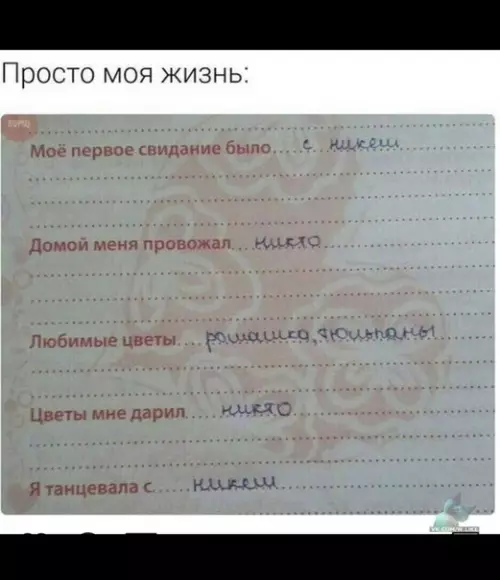 Просто моя жизнь:
Моё первое свидание было с никем
Домой меня провожал никто
Любимые цветы ромашка, тюльпаны
Цветы мне дарил никто
Я танцевала с никем